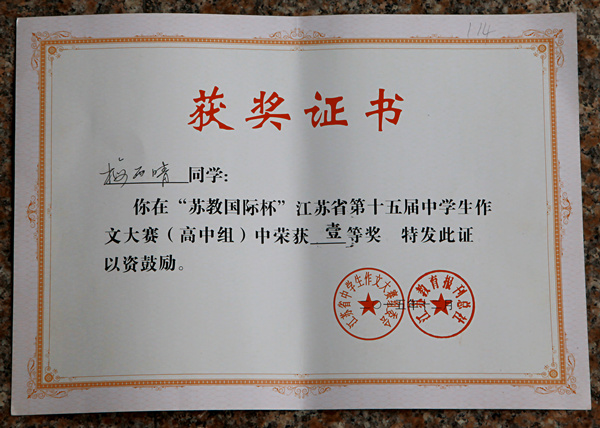 114
获奖证书
梅雨晴同学:
你在“苏教国际杯”江苏省第十五届中学生作
文大赛（高中组）中荣获壹等奖 特发此证
以资鼓励。
江苏省中学生作文大赛组委会
江苏教育报刊总社
二〇一五年十二月